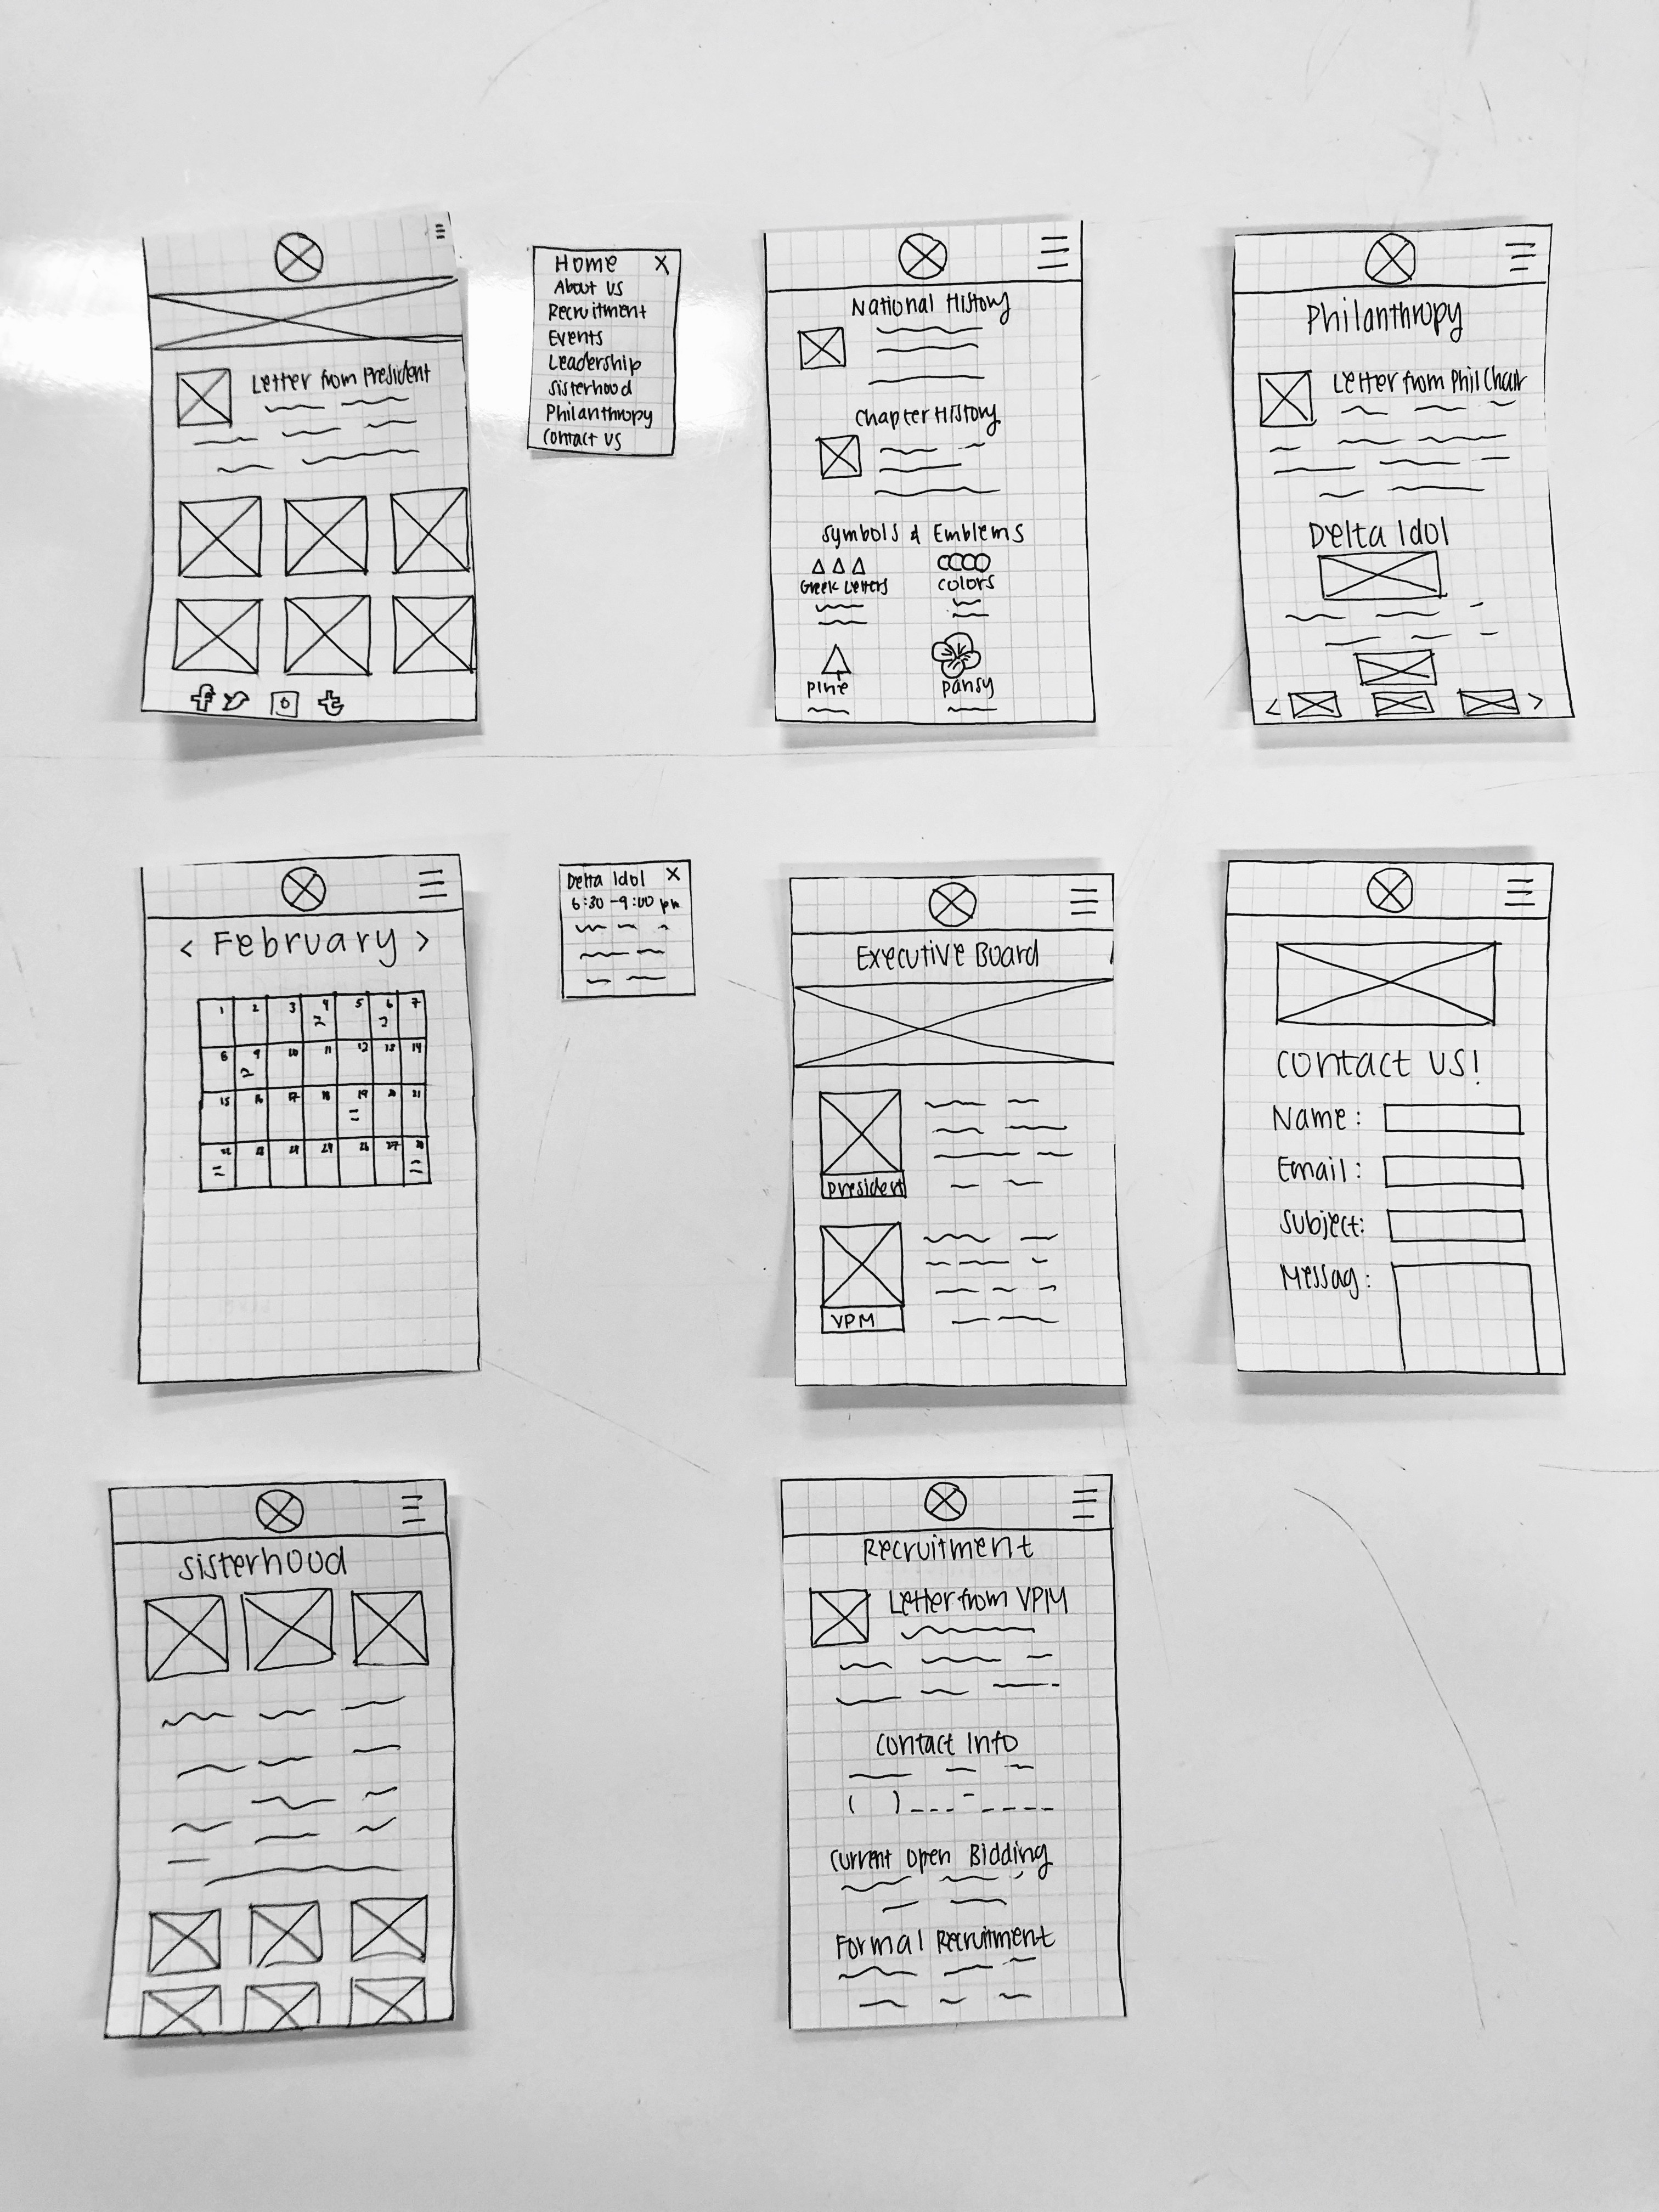 Letter from President
Home X
About us
Recruitment
Events
Leadership
Sisterhood
Philanthropy
Contact us
National History
Chapter History
Symbols & Emblems
Greek Letters
colors
pine
pansy
Philanthropy
Letter from Phil Chair
Delta Idol
< >
< February >
1 2 3 4 5 6 7
8 9 10 11 12 13 14
15 16 17 18 19 20 21
22 23 27 28
Delta Idol X
6:30 - 9:00 pm
Executive Board
President
VPM
Contact us!
Name:
Email:
Subject:
Messag:
Sisterhood
Recruitment
Letter from VPM
Contact Info
( ) _ _ _ - _ _ _ _
Current Open Bidding
Formal Recruitment